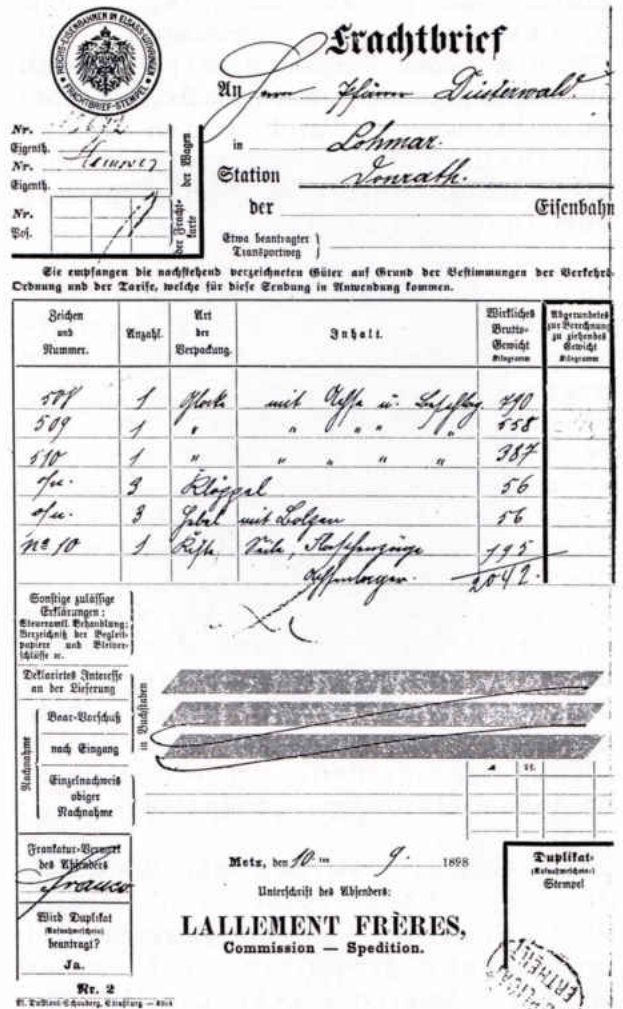 REICHS-EISENBAHNEN IN ELSASS-LOTHRINGEN
* FRACHTBRIEF-STEMPEL *
Frachtbrief
An Herrn Pfarrer Düsterwald.
in Lohmar.
Station Donrath.
der Eisenbahn
Etwa beantragter
Transportweg
Nr.
Eigenth. Hannover
Nr.
Eigenth.
der Wagen
Nr.
Pos.
der Fracht-
karte
Sie empfangen die nachstehend verzeichneten Güter auf Grund der Bestimmungen der Verkehrs-
Ordnung und der Tarife, welche für diese Sendung in Anwendung kommen.
Zeichen
und
Nummer.
Anzahl.
Art
der
Verpackung.
Inhalt.
Wirkliches
Brutto-
Gewicht
Kilogramm
Abgerundetes
zur Berechnung
zu ziehendes
Gewicht
Kilogramm
508 1 Glocke mit Achse u. Beschlag. 790
509 1 " " " " " 558
510 1 " " " " " 387
o/n. 3 Klöppel 56
o/n. 3 Hebel mit Bolzen 56
No 10 1 Kiste, Seile, Flaschenzüge 195
Achsenlager. 2042.
Sonstige zulässige
Erklärungen:
Steueramtl. Behandlung;
Verzeichniß der Begleit-
papiere und Bleiver-
schlüsse ec.
Deklarirtes Interesse
an der Lieferung
in Buchstaben
Nachnahme
Baar-Vorschuß
nach Eingang
Einzelnachweis
obiger
Nachnahme
Frankatur-Vermerk
des Absenders
Franco
Wird Duplikat
(Aufnahmeschein)
beantragt?
Ja.
Metz, den 10 ten 9. 1898
Unterschrift des Absenders:
LALLEMENT FRÈRES,
Commission — Spedition.
Duplikat-
(Aufnahmeschein)
Stempel
DUPLICAT
ERTHEILT
Nr. 2
M. DuMont-Schauberg, Straßburg —